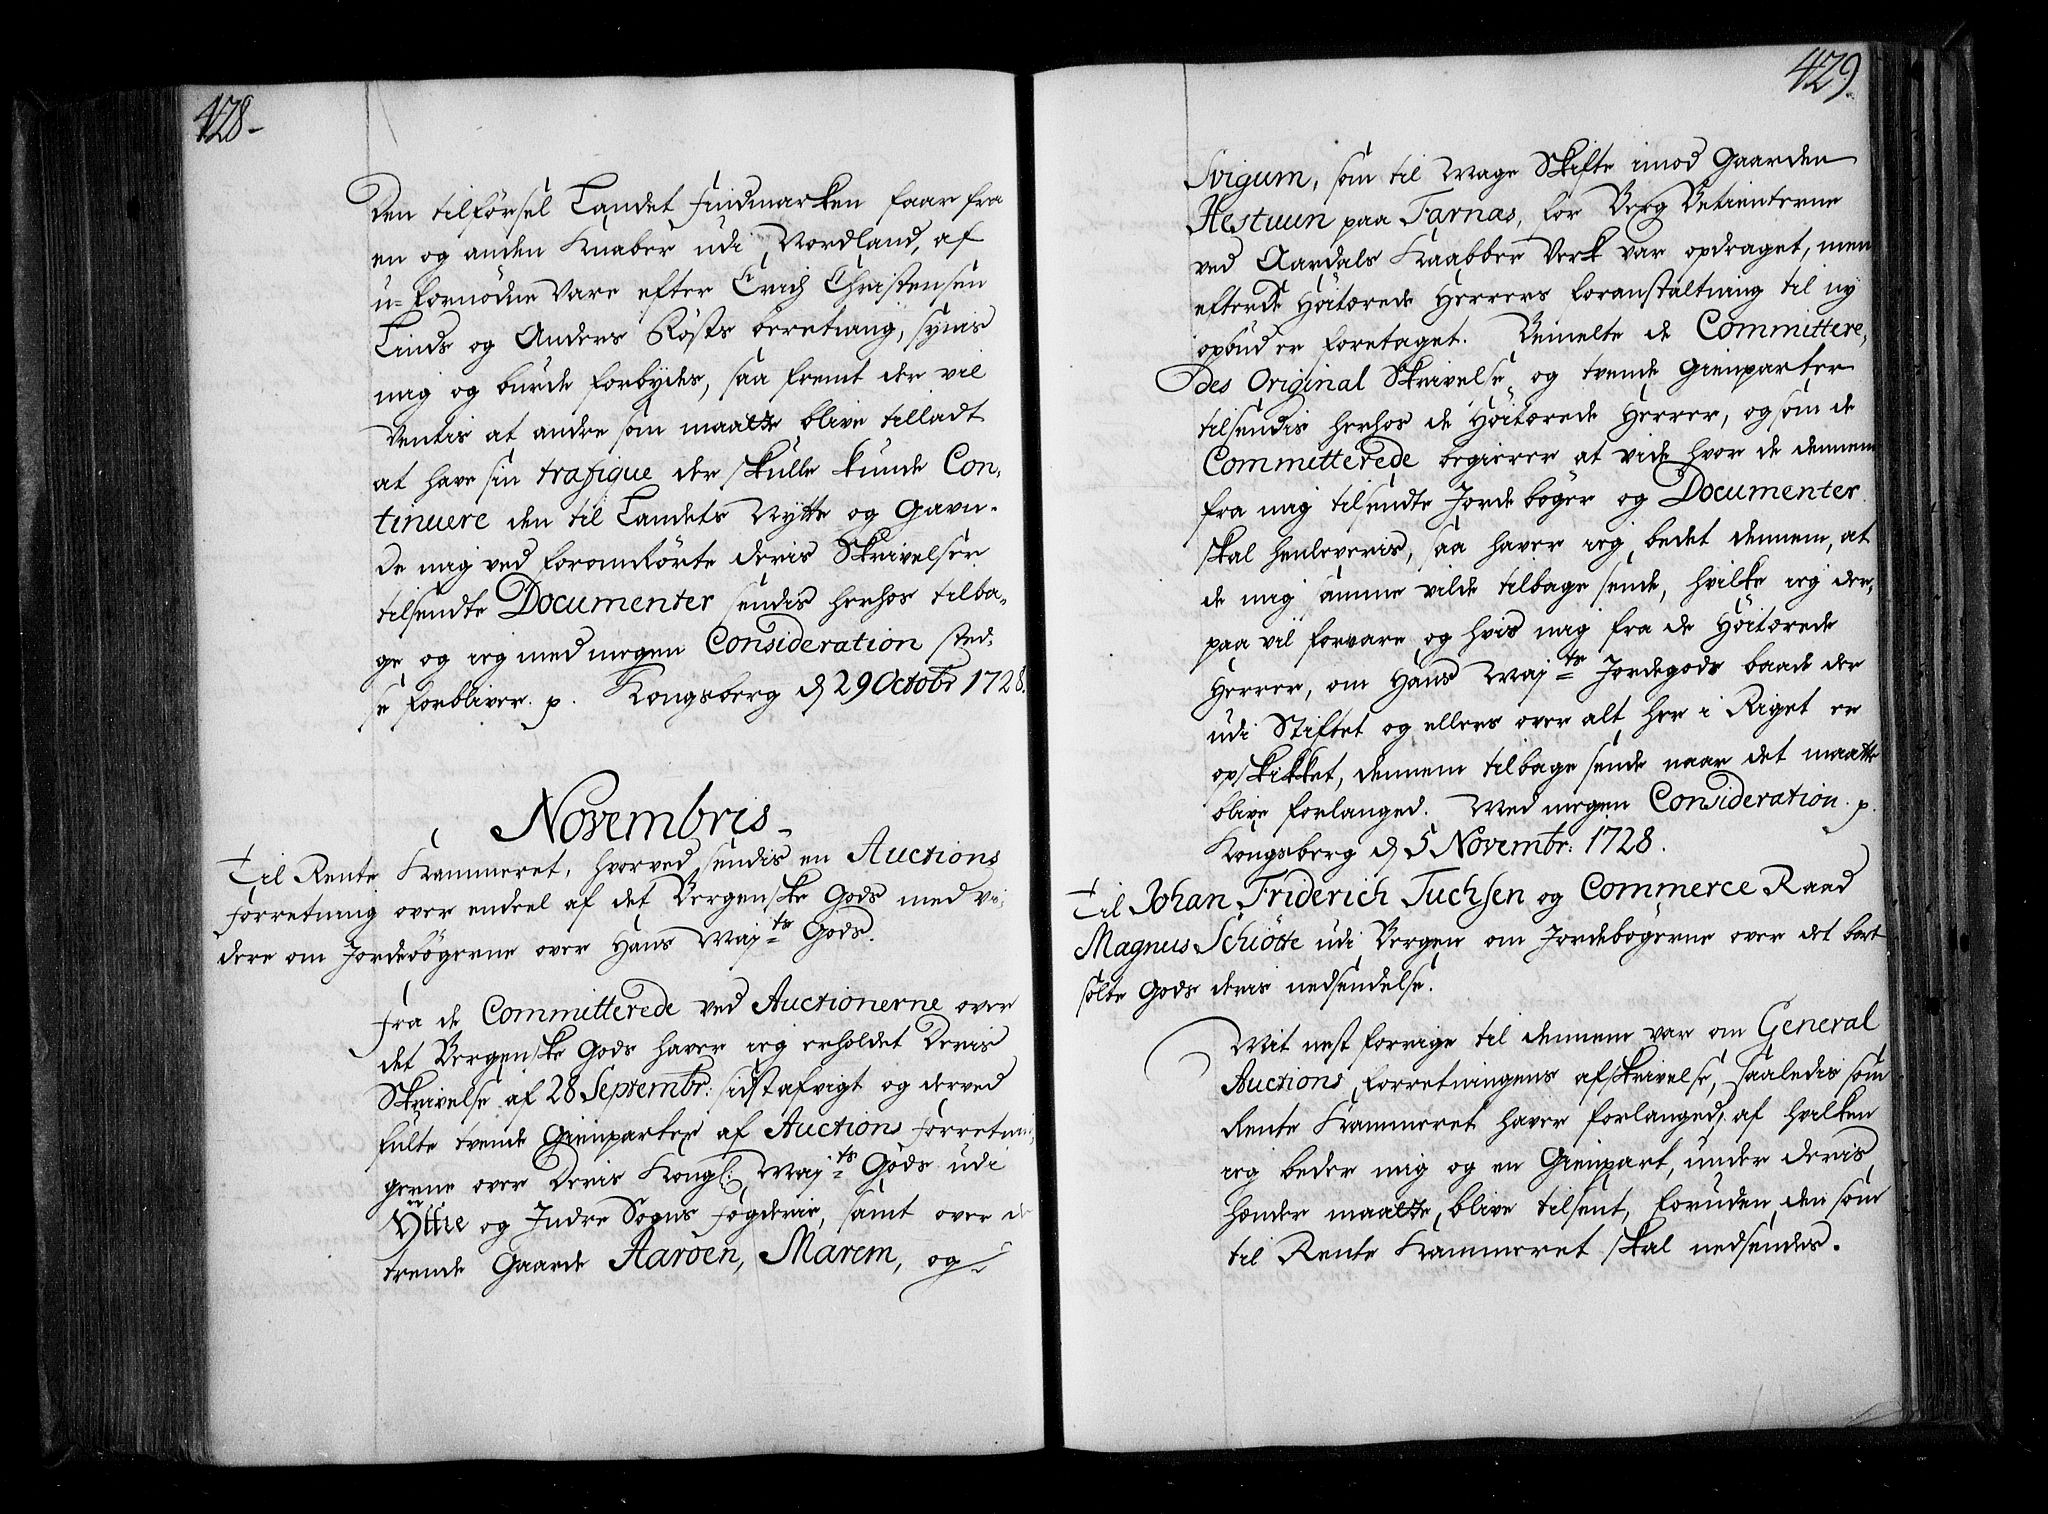 428.
Den tilførsel Landet Findmarken faar fra
en og anden Knaber udi Nordland, af
u-fornødne Vare efter Erich Christensen
Linds og Anders Røsts beretning, synis
mig og burde forbydes, saa fremt der vil
Ventis at andre som maatte blive tilladt
at have sin trafique der skulle kunde Con-
tinuere den til Landets Nytte og Gavn.
De mig ved foromrørte deris Skrivelser
tilsendte Documenter sendis herhos tilba-
ge og ieg med megen Consideration sted-
se forbliver. p. Kongsberg d 29 Octobr 1728.
Novembris.
Til Rente Kammeret, hvorved sendis en Auctions
forretning over endeel af det Bergenske Gods med vi-
dere om Jordebøgerne over Hans Maj.ts Gods.
Fra de Committerede ved Auctionerne over
det Bergenske Gods haver ieg erholdet Deris
Skrivelse af 28 Septembr: sidst afvigt og derved
fulte tvende Gienparter af Auctions forretnin-
gerne over Deris Kongl: Maj.ts Gods udi
Yttre og Indre Sogns Fogderie, samt over de
trende Gaarde Aarøen, Marem, og
429.
Svigum, som til Mage Skifte imod Gaarden
Hestuun paa Farnas, for Berg Betienterne
ved Aardals Kaabber Verk var opdraget, men
efter de Høitærede Herrers foranstaltning til ny
opbud er foretaget. Bemelte de Committere-
des Original Skrivelse og tvende Gienparter
tilsendis herhos de Høitærede Herrer, og som de
Committerede begierer at vide hvor de dennem
fra mig tilsendte Jordebøger og Documenter
skal henleveris, saa haver ieg bedet dennem, at
de mig samme vilde tilbage sende, hvilke ieg der-
paa vil forvare og hvis mig fra de Høitærede
Herrer, om Hans Maj.ts Jordegods baade der
udi Stiftet og ellers over alt her i Riget er
opskikket, dennem tilbage sende naar det maatte
blive forlanged. Med megen Consideration. p.
Kongsberg d 5 Novembr: 1728.
Til Johan Friderich Tuchsen og Commerce Raad
Magnus Schiøtte udi Bergen om Jordebøgerne over det bort
solte Gods deris nedsendelse.
Mit nest forrige til dennem var om General
Auctions forretningens afskrivelse, saaledis som
Rente Kammeret haver forlanged, af hvilken
ieg beder mig og en Gienpart, under deris
Hænder maatte blive tilsent, foruden den som
til Rente Kammeret skal nedsendes.